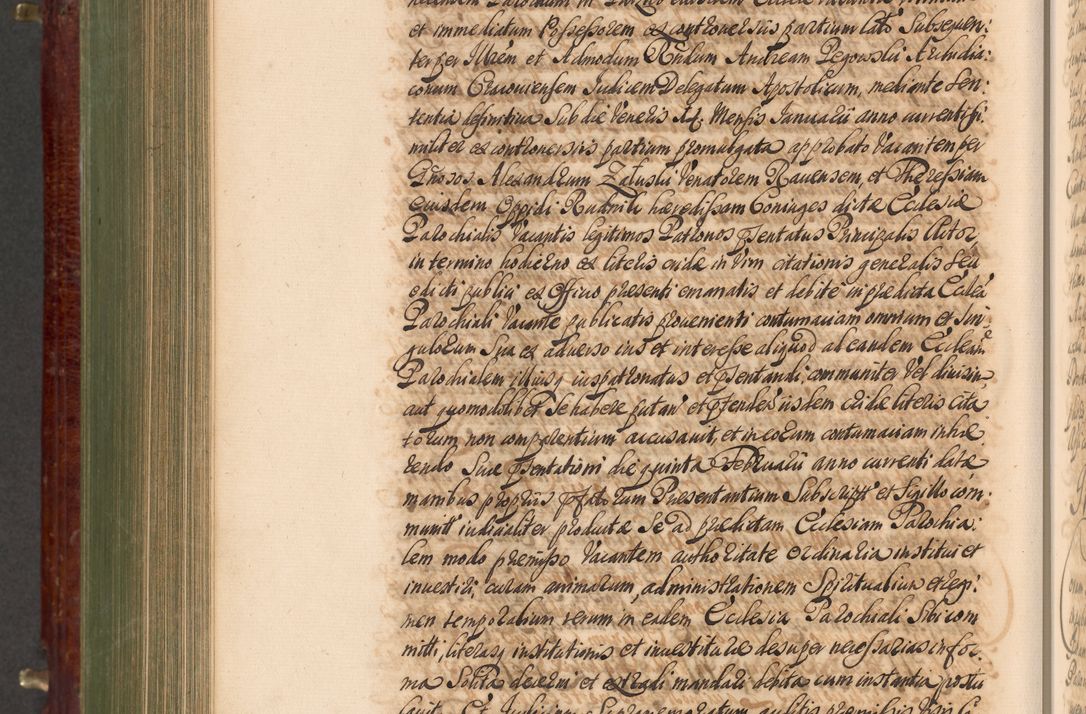 et immediatum Possessorem ex controversiis partium lato Subsequen:
ter per Illrem et Admodum Rndum Andream Pegowski Archidia:
conum Cracoviensem Iudicem Delegatum Apostolicum, mediante Sen:
tentia definitiva Sub die Veneris Mensis Ianuarii anno currenti si:
militer ex controversiis partium promulgata approbato Vacantem per
Gnosos Alexandrum Zaluski Venatorem Ravensem, et Theressiam
eiusdem Oppidi Rudniki hæredissam Coniuges dictæ Ecclesiæ
Parochialis Vacantis legitimos Patronos pſentatus Principalis Actor
in termino hodierno ex literis cridæ in Vim citationis generalis Seu
edicti publici ex Officio præsenti emanatis et debite in prædicta Eccleā
Parochiali Vacante publicatis provenienti contumaciam omnium et Sin:
gulorum Sua ex adverso ius et interesse aliquod ad eandem Eccleam
Parochialem illiusq iuspatronatus et pſentandi communiter Vel divisim
aut quomodolibet Se habere putan et pſenden iisdem cridæ literis cita
torum non comparentium accusavit, et in eorum contumaciam inhæ
rendo Suæ pſentationi die quinta Februarii anno currenti datæ
manibus propriis pſatorum Præsentantium Subscript et Sigillo com:
munit iudicialiter productæ Se ad prædictam Ecclesiam Parochia:
lem modo præmisso Vacantem authoritate ordinaria institui et
investiri, curam animarum, administrationem Spiritualium et regi:
men temporalium rerum in eadem Ecclesia Parochiali Sibi com
mitti, literasq institutionis et investituræ desuper necessarias in for:
ma Solita decerni et extradi mandari debita cum instantia postu
lavit. Et Iudicium auditis præmissis